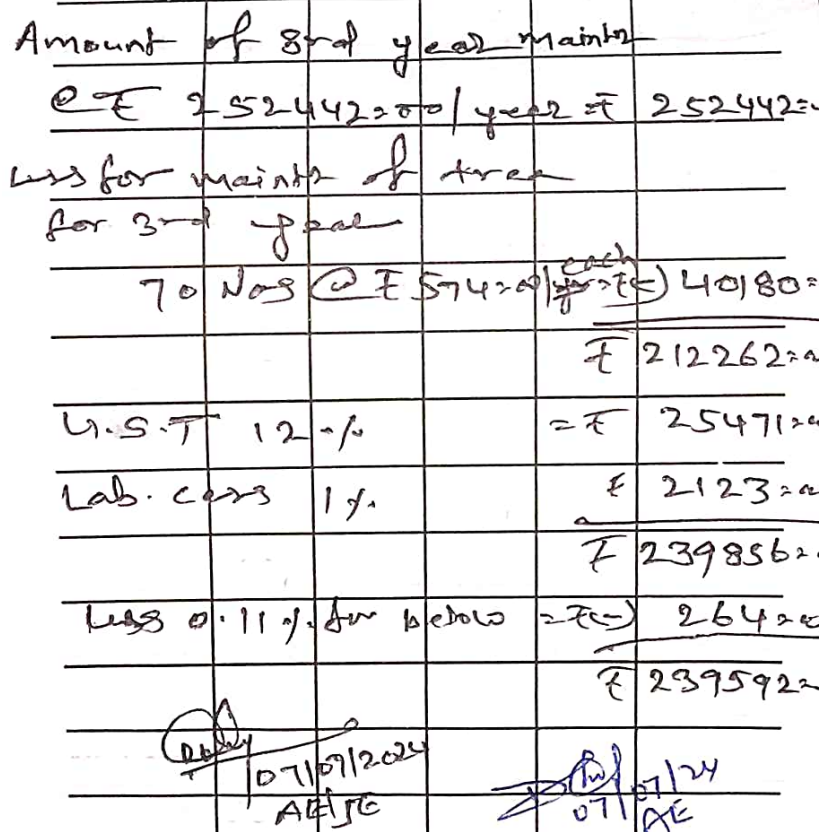 Amount of 3rd year maintz
@ ₹ 252442=00/year = ₹ 252442=
Less for maintz of tree
for 3rd year
each
70 Nos @ ₹ 574=00/ = ₹ (-) 40180=
₹ 212262=
G.S.T 12% = ₹ 25471=
Lab. cess 1% ₹ 2123=
₹ 239856=
Less 0.11% for below = ₹(-) 264=
₹ 239592=
07/07/24
AE/JE 07/ AE